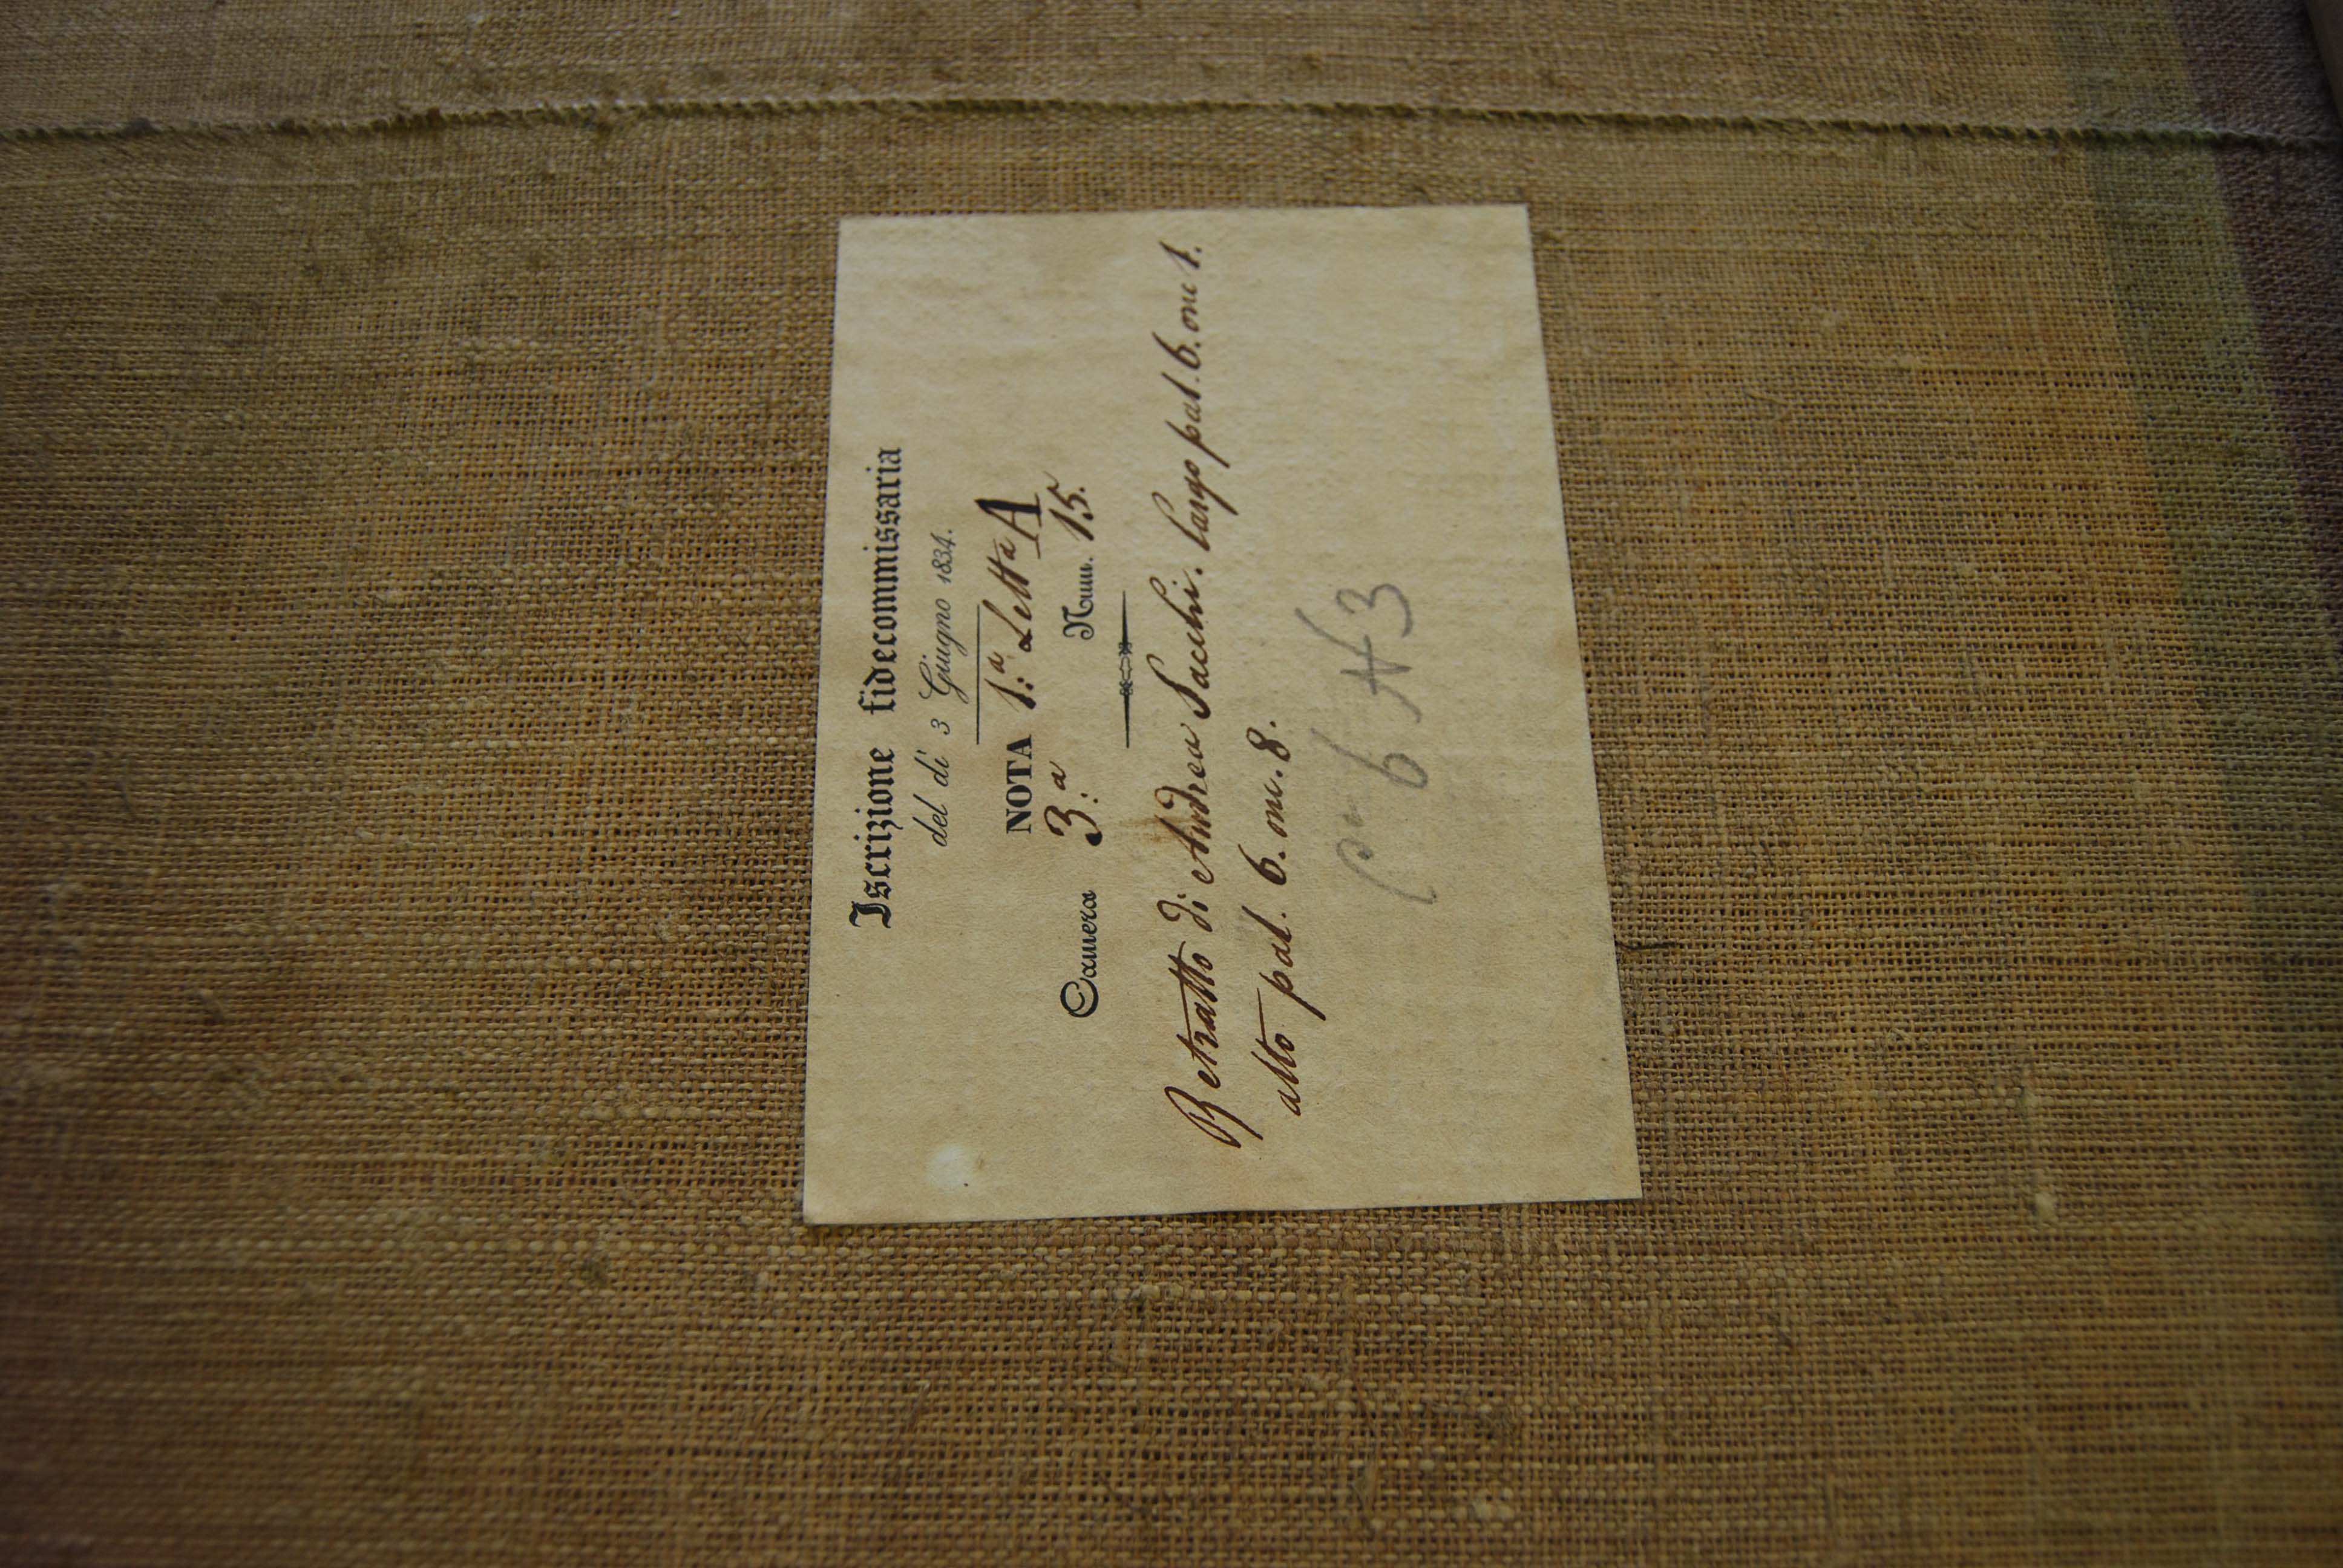 Iscrizione fidecommissaria
del dì 3 Giugno 1834.
NOTA 1.ª Lettª A
Camera 3.ª Num. 15.
Retratto di Andrea Sacchi. largo pal. 6. onc 1.
alto pal. 6. onc. 8.